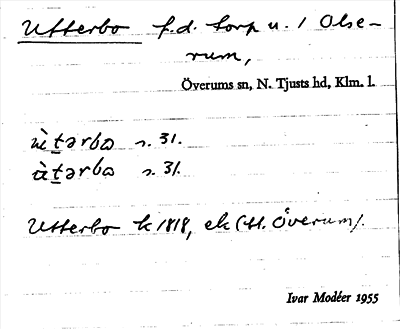 Utterbo f.d. torp u. 1 Olse-
rum,
Överums sn, N. Tjusts hd, Klm. l.
ùt̲ərbω s. 31.
ùt̲ərbω s. 31.
Utterbo k 1818, ek (st. Överum).
Ivar Modéer 1955